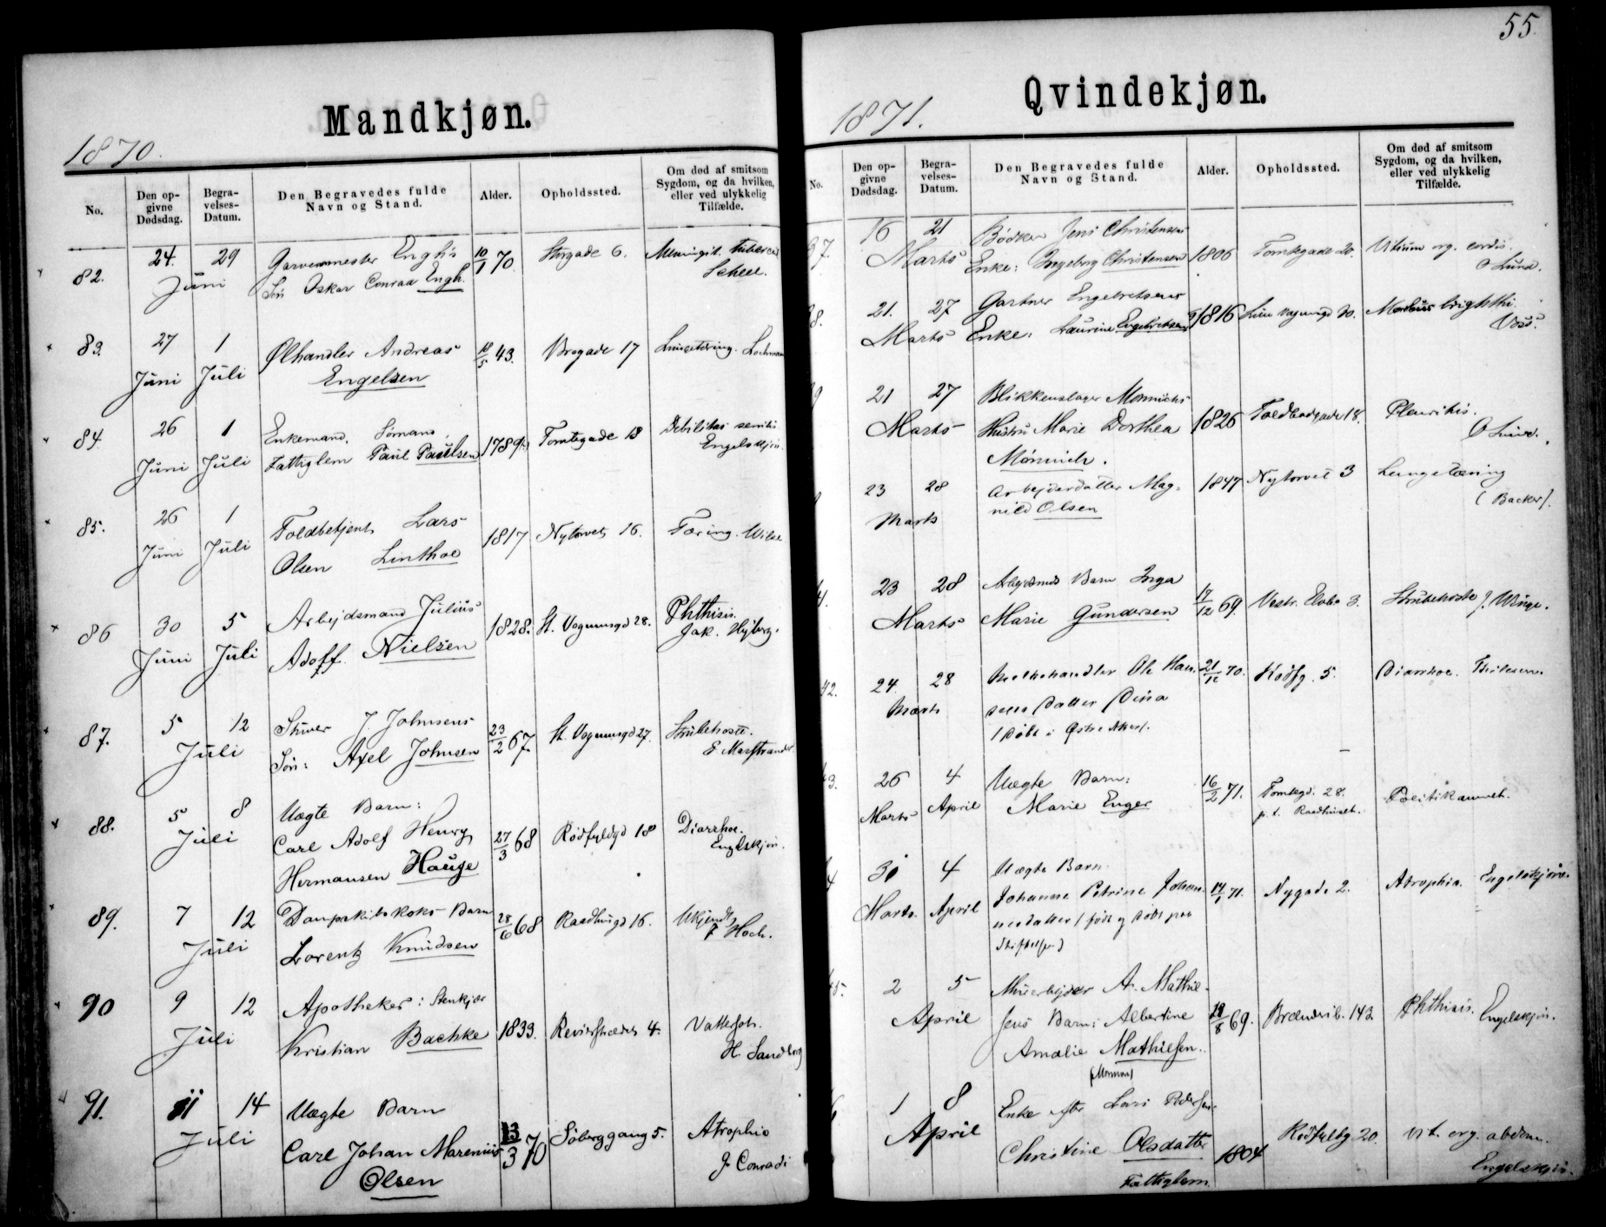 Mandkjøn.
1870.
No.
Den op-
givne
Dødsdag.
Begra-
velses-
Datum.
Den Begravedes fulde
Navn og Stand.
Alder.
Opholdssted.
Om død af smitsom
Sygdom, og da hvilken,
eller ved ulykkelig
Tilfælde.
82.
24. 29
Juni
Garvermester Engh's
Søn Oskar Conrad Engh.
10/1 70
Storgade 6.
Scheel.
83.
27 1
Juni Juli
Ølhandler Andreas
Engelsen
10/5 43.
Brogade 17
84
26 1
Juni Juli
Enkemand, Sømand,
Fattiglem Paul Paulsen
1789
Tomtegade 18
Debilitas senilis
Engelskjøn
85.
26 1
Juni Juli
Toldbetjent Lars
Olsen Linthoe
1817
Nytorvet 16.
Tæring. Wilse
86
30 5
Juni Juli
Arbejdsmand Julius
Adolf Nielsen
1828.
St. Vognmgd 28.
Phthisis.
87.
5 12
Juli
J. Johnsens
Søn: Axel Johnsen
23/2 67.
St. Vognmgd 27.
Strubehoste.
E Marstrander
88.
5 8
Juli
Uægte Barn:
Carl Adolf Henry
Hermansen Hauge
27/3 68
Rødfyldgd 18
Diarrhoe.
Engelskjøn.
89.
7 12
Juli
Dampskibskoks Barn
Lorentz Knudsen
28/6 68
Raadhusgd 16.
Ukjendt
Hoch.
90
9 12
Juli
Apotheker: Stenkjær
Kristian Bachke
1833.
Revierstrædet 4.
Vattersot.
H. Sandberg
91.
11 14
Juli
Uægte Barn
Carl Johan Marenius
Olsen
13/3 70
Søberggang 5.
Atrophia
J. Conradi
55.
Qvindekjøn.
1871.
No.
Den op-
givne
Dødsdag.
Begra-
velses-
Datum.
Den Begravedes fulde
Navn og Stand.
Alder.
Opholdssted.
Om død af smitsom
Sygdom, og da hvilken,
eller ved ulykkelig
Tilfælde.
37.
16 21
Marts
Bødker Jens Christensens
Enke: Ingeborg Christensen
1806
Tomtegade 20.
Vitium org. cordis.
O Lund.
38.
21. 27
Marts
Gartner Engebretsens
Enke, Laurine Engebretsen
1816
Lille Vognmgd 10.
Morbus brightii
Voss.
21 27
Marts
Blikkenslager Mønnichs
Hustru Marie Dorthea
Mønnich.
1826
Toldbodgaden 18.
Pleuritis.
O Lund.
23 28
Marts
Arbejderdatter Mag-
nild Olsen
1847
Nytorvet 3
Lungetæring
(Backer).
41.
23 28
Marts
Arbejdsmds Barn Inga
Marie Gundersen
17/12 69.
Vestr. Elvbk 3.
Strubehoste J. Winge.
42.
24 28
Marts
Melkehandler Ole Han-
sens Datter Dina
(Døbt i Østre Aker).
21/12 70.
Kodfg. 5.
Diarrhoe.
43.
26 4
Marts April
Uægte Barn:
Marie Enger
16/2 71.
Tomtegd. 28.
p. t. Raadhuset.
Politikammet.
31 4
Marts April
Uægte Barn
Johanne Petrine Johan-
nesdatter (født og døbt paa
Stiftelsen)
14/1 71.
Nygade 2.
Atrophia. Engelskjøn.
45.
2 5
April
Murarbejder A. Mathie-
sens Barn: Albertine
Amalie Mathiesen.
(Mormon)
69.
Brænderib. 143.
Phthisis. Engelskjøn.
1 8
April
Enke efter Lars Pedersen
Christine Olsdatter
Fattiglem
1804
Rødfyldg 20.
Vit. org. abdom.
Engelskjøn.